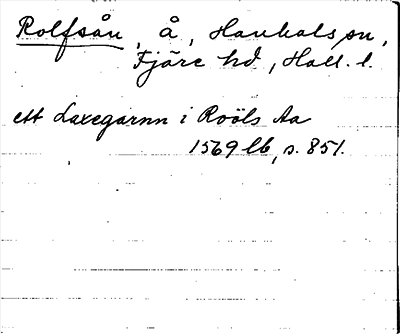 Rolfsån, å, Hanhals sn,
Fjäre hd, Hall. l.
ett Laxegarnn i Roöls Aa
1569 lb, s. 851.